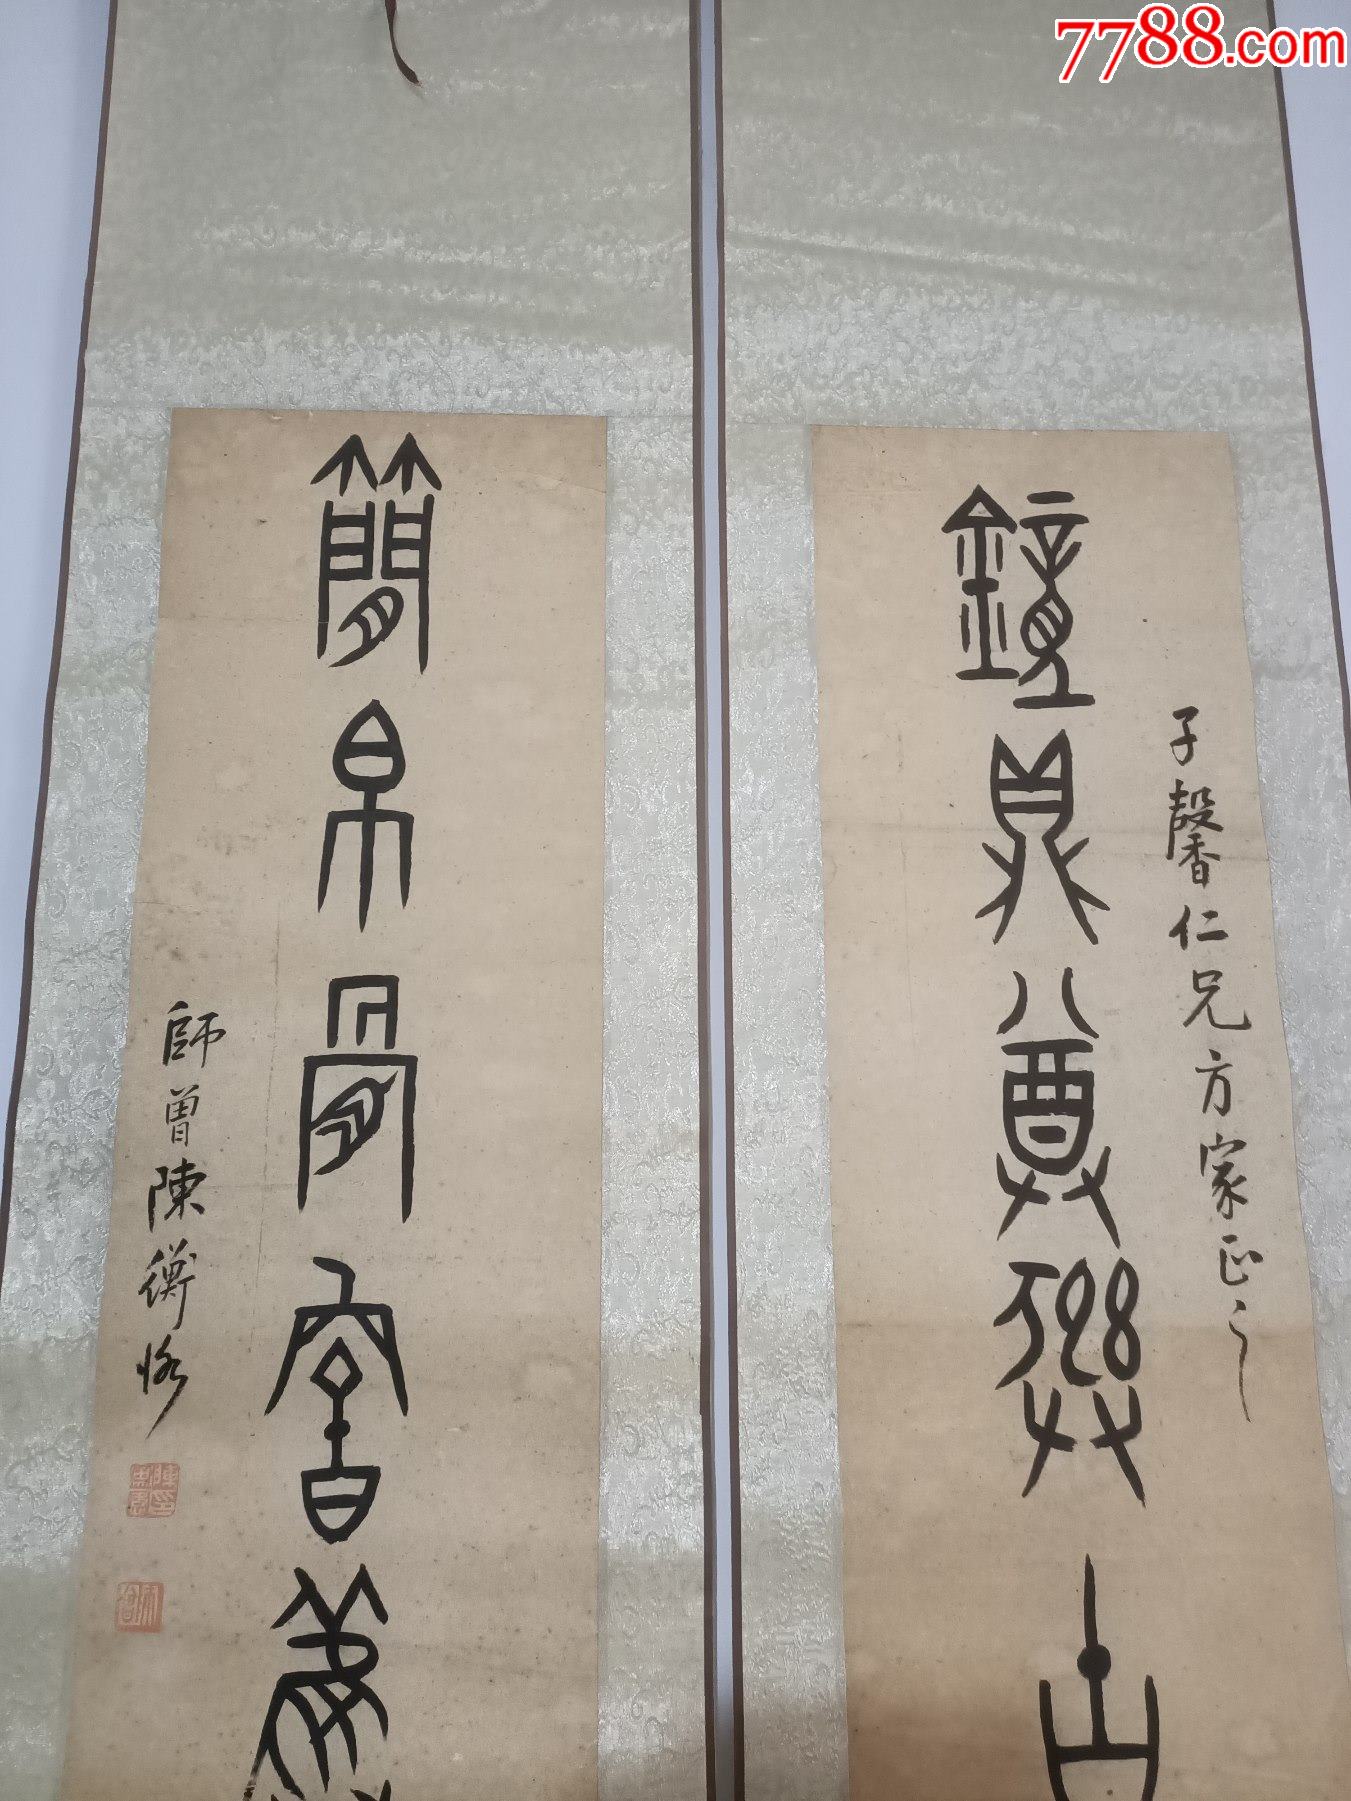 7788.com
子馨仁兄方家正之
鐘鼎尊彝古
簡帛骨
師曾陳衡恪